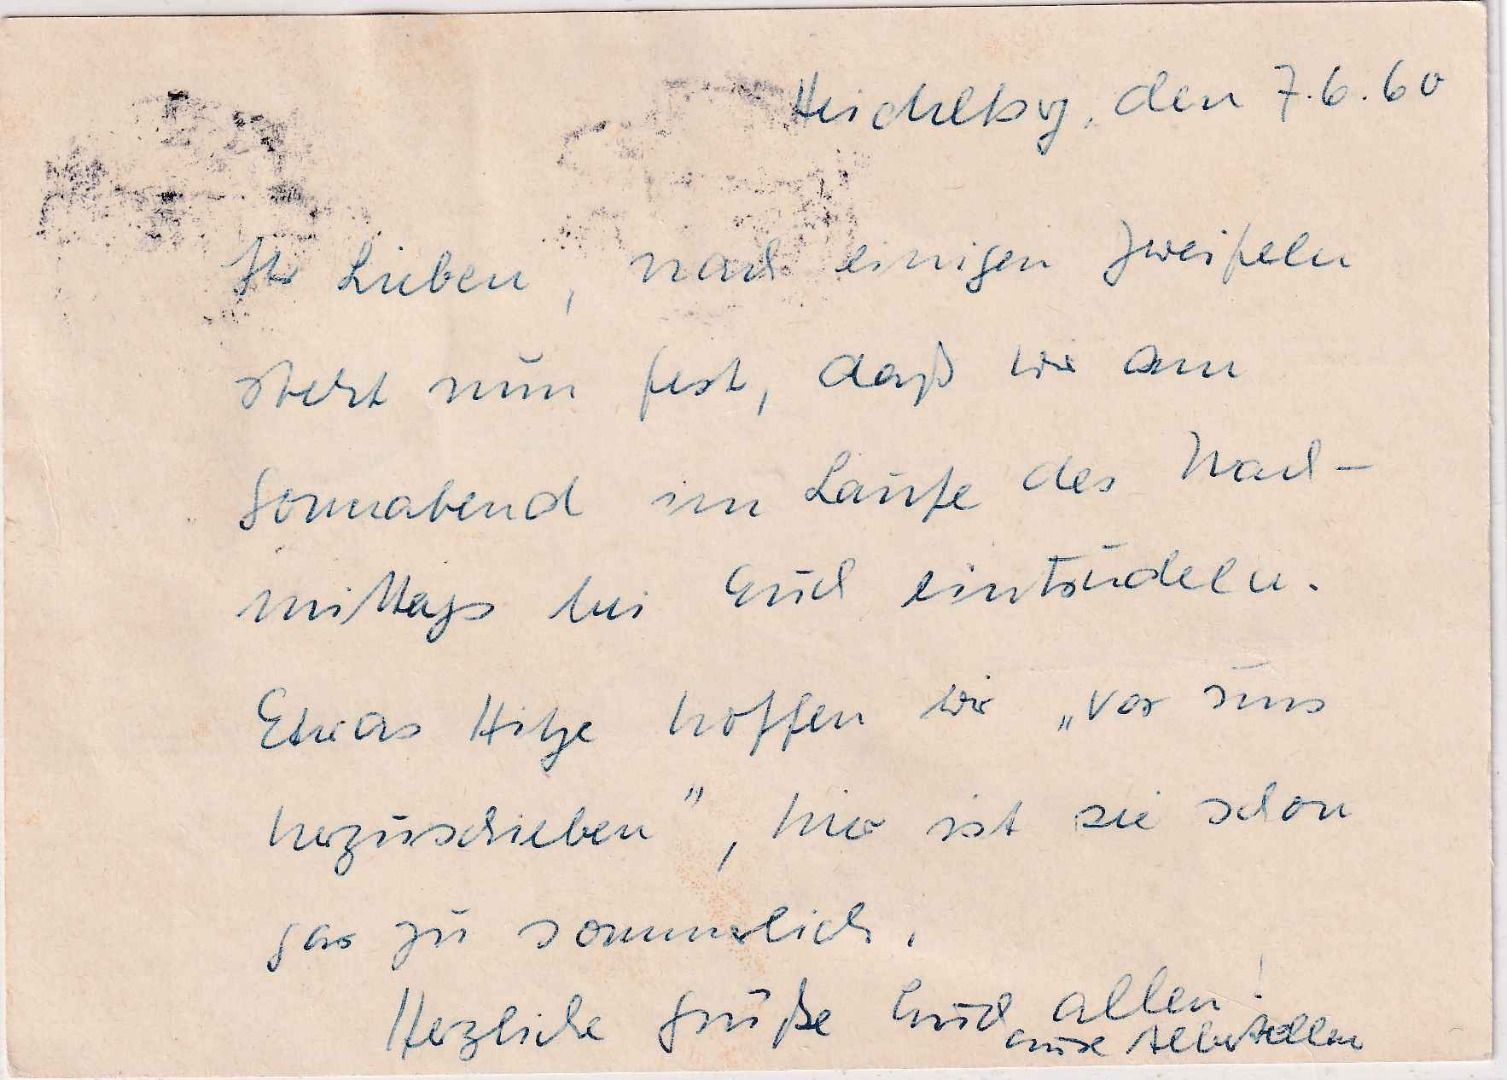 Heidelbg, den 7.6.60
Ihr Lieben, nach einigen Zweifeln
steht nun fest, daß wir am
Sonnabend im Laufe des Nach-
mittags bei Euch eintrudeln.
Etwas Hitze hoffen wir „vor uns
herzuschieben", hier ist sie schon
gar zu sommerlich.
Herzliche Grüße Euch allen!